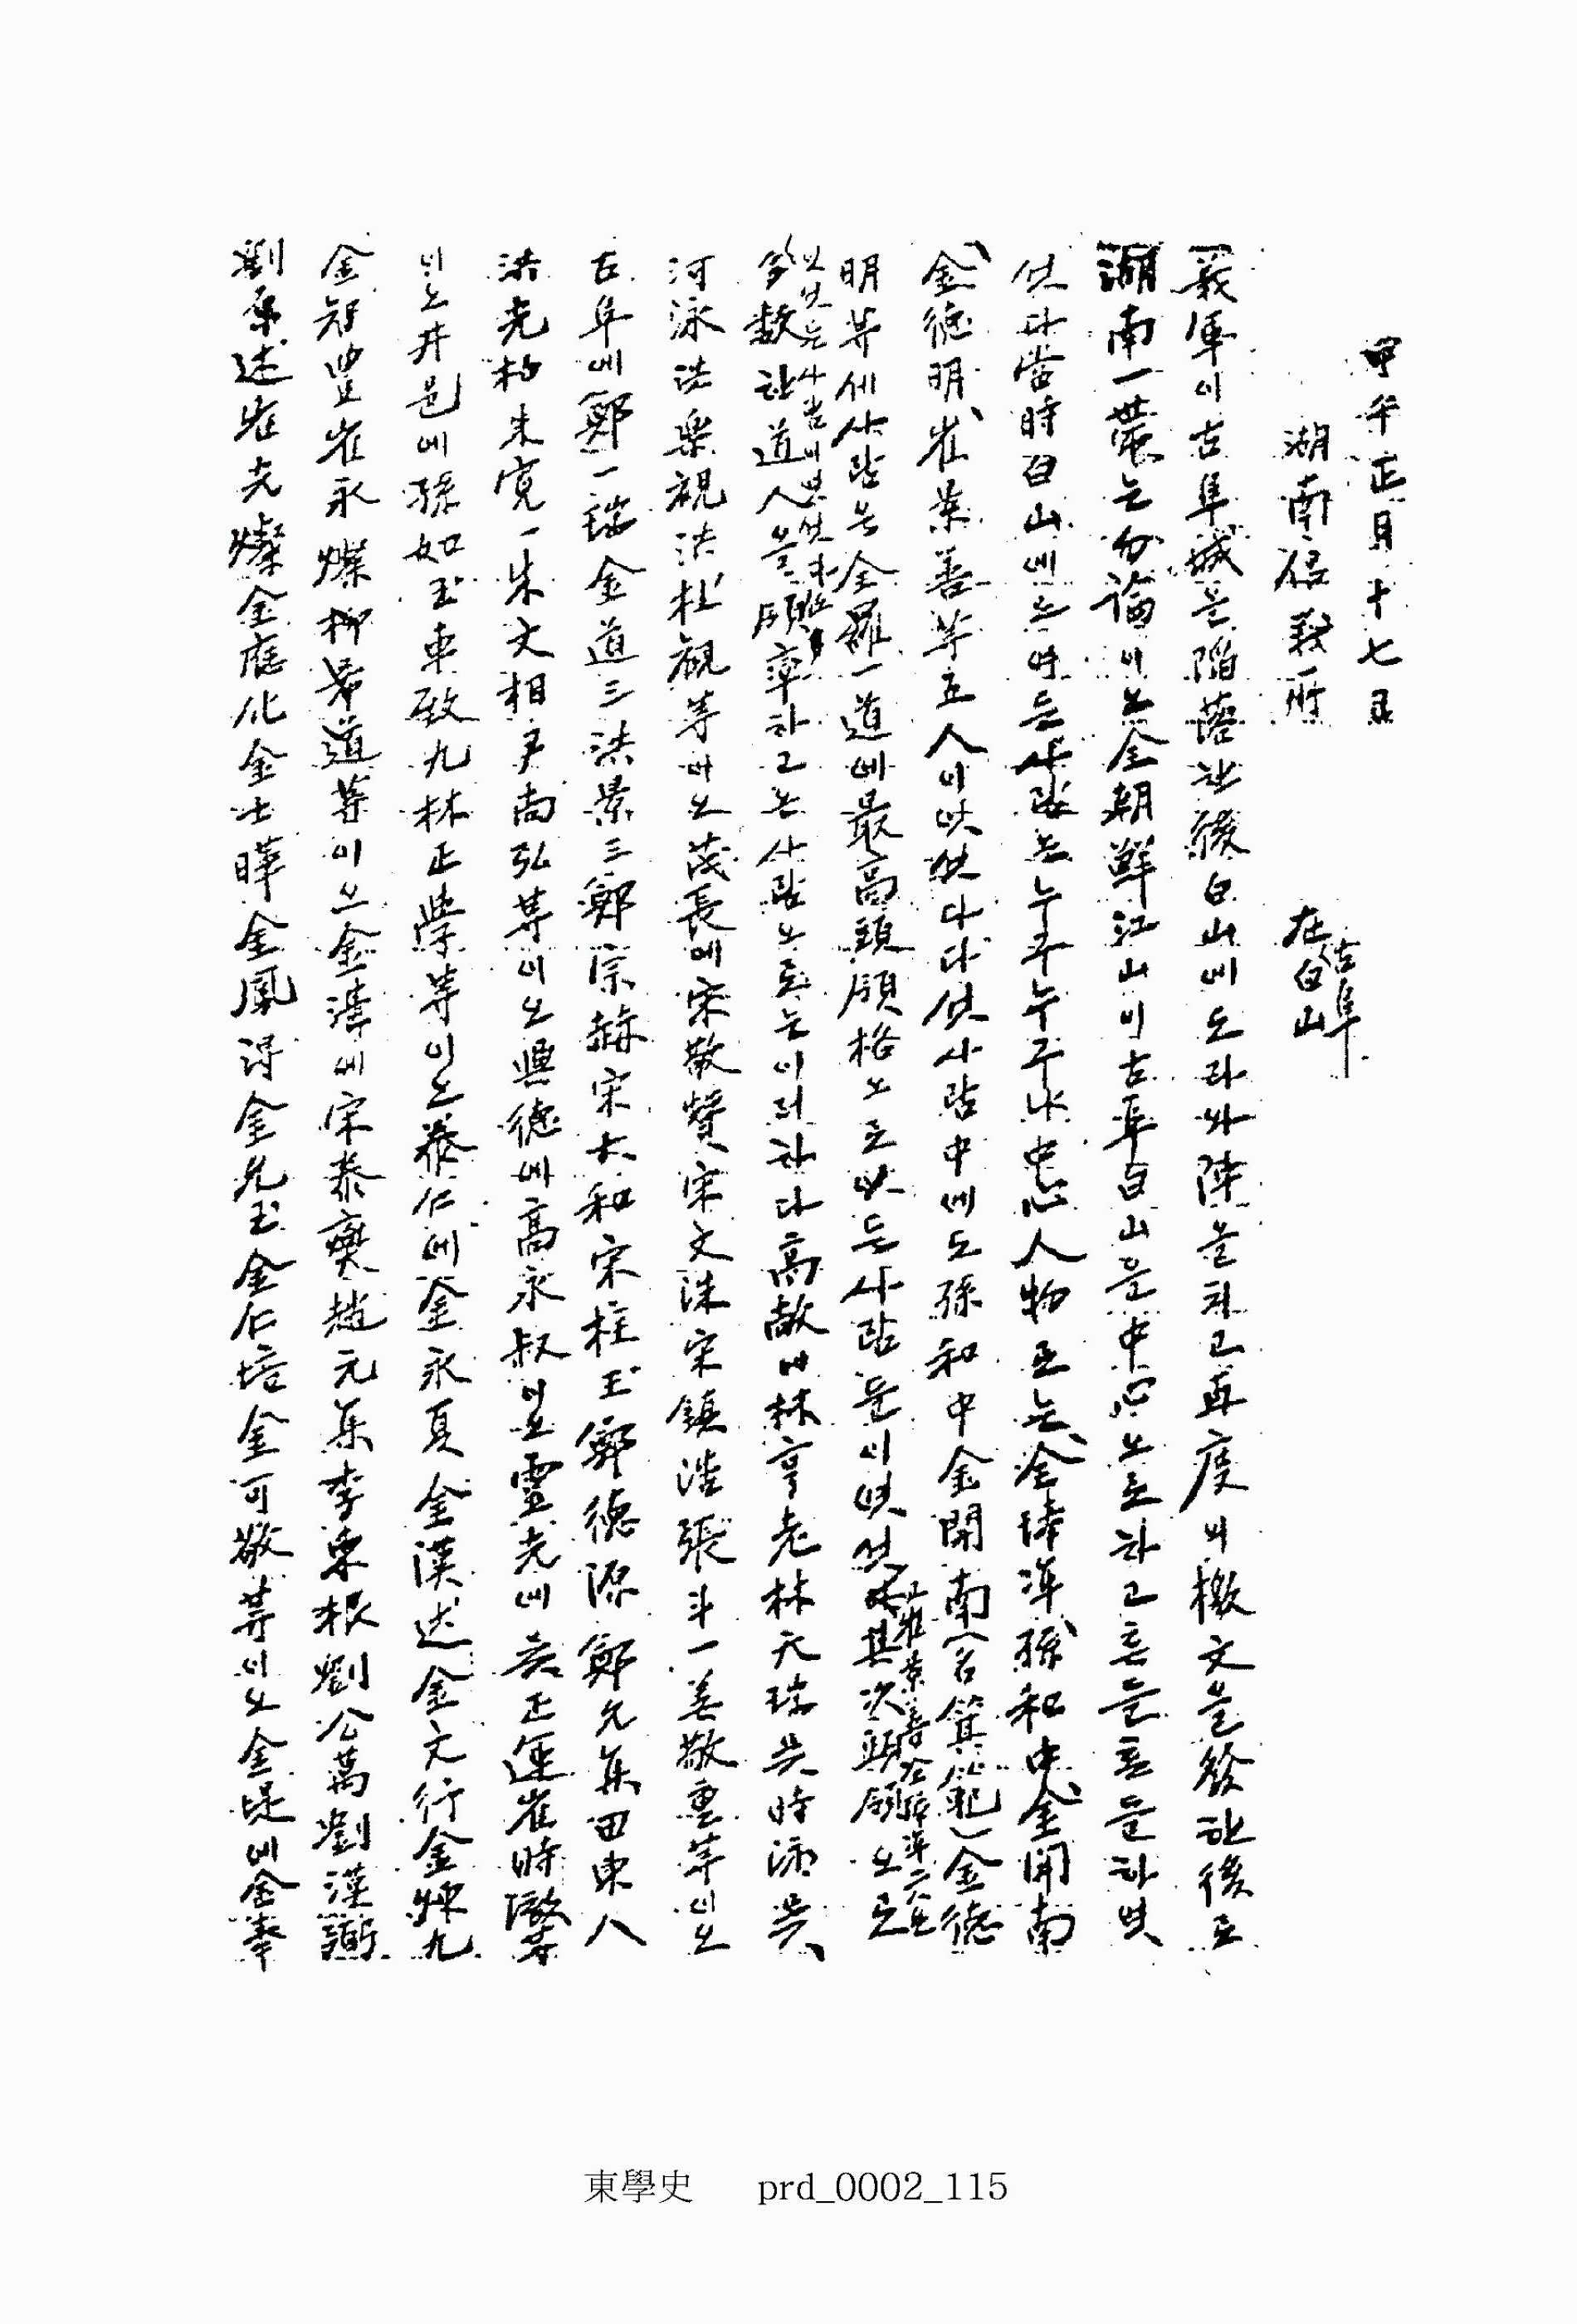 甲午正月十七日
湖南倡義所 在古阜白山
義軍이古阜城을陷落한後白山에도라와陣을치고再度의檄文을發한後로
湖南一帶는勿論이오全朝鮮江山이古阜白山을中心으로하고흔들흔들하엿
섯다當時白山에모여든사람은누구누구나中心人物로는全琫準孫和中金開南
金德明崔景善等五人이엿섯다다섯사람中에도孫和中金開南(一名箕範)金德
明等세사람은全羅一道에最高頭領格으로잇든사람들이엿섯고其次頭領으로
崔景善全琫準二人은
多數한道人을領率하고온사람으로는이러하다高敞에林亨老林天瑞吳時泳吳
河泳洪樂觀洪桂觀等이오茂長에宋敬贊宋文洙宋鎭浩張斗一姜敬重等이오
古阜에鄭一瑞金道三洪景三鄭宗赫宋大和宋柱玉鄭德源鄭允集田東八
洪光杓朱寬一朱文相尹尙弘等이오興德에高永叔이오靈光에吳正運崔時澈
이오井邑에孫如玉車致九林正學等이오泰仁에金永夏金漢述金文行金煉九
金智豊崔永燦柳希道等이오金溝에宋泰燮趙元集李東根劉公萬劉漢弼
劉泰述崔光燦金應化金士曄金鳳得金允玉金仁培金可敬等이오金堤에金奉